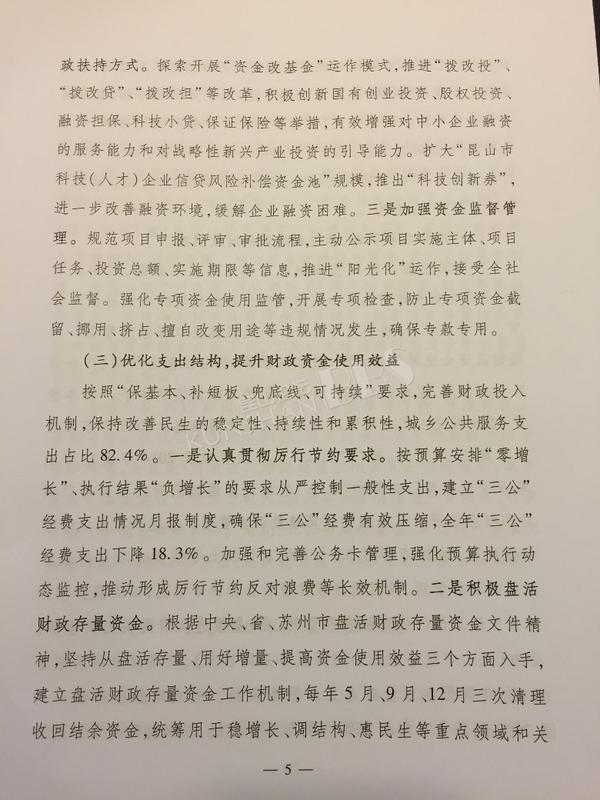 政扶持方式。探索开展“资金改基金”运作模式,推进“拨改投”、
“拨改贷”、“拨改担”等改革,积极创新国有创业投资、股权投资、
融资担保、科技小贷、保证保险等举措,有效增强对中小企业融资
的服务能力和对战略性新兴产业投资的引导能力。扩大“昆山市
科技(人才)企业信贷风险补偿资金池”规模,推出“科技创新券”,
进一步改善融资环境,缓解企业融资困难。三是加强资金监督管
理。规范项目申报、评审、审批流程,主动公示项目实施主体、项目
任务、投资总额、实施期限等信息,推进“阳光化”运作,接受全社
会监督。强化专项资金使用监管,开展专项检查,防止专项资金截
留、挪用、挤占、擅自改变用途等违规情况发生,确保专款专用。
(三)优化支出结构,提升财政资金使用效益
按照“保基本、补短板、兜底线、可持续”要求,完善财政投入
机制,保持改善民生的稳定性、持续性和累积性,城乡公共服务支
出占比 82.4%。一是认真贯彻厉行节约要求。按预算安排“零增
长”、执行结果“负增长”的要求从严控制一般性支出,建立“三公”
经费支出情况月报制度,确保“三公”经费有效压缩,全年“三公”
经费支出下降 18.3%。加强和完善公务卡管理,强化预算执行动
态监控,推动形成厉行节约反对浪费等长效机制。二是积极盘活
财政存量资金。根据中央、省、苏州市盘活财政存量资金文件精
神,坚持从盘活存量、用好增量、提高资金使用效益三个方面入手,
建立盘活财政存量资金工作机制,每年 5 月、9 月、12 月三次清理
收回结余资金,统筹用于稳增长、调结构、惠民生等重点领域和关
— 5 —